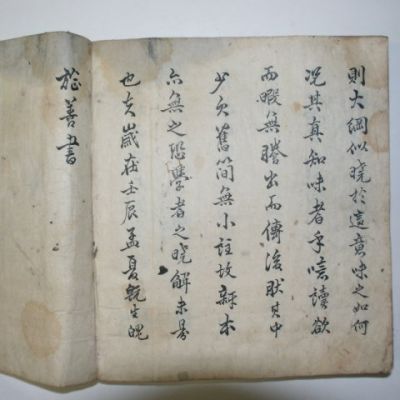 則大綱似曉於這意味之如何
况其真知味者乎讀欲
而暇無謄出而傳後其中
少欠舊簡無小註故本
亦無之恐學者之曉解未易
也夫歲在壬辰孟夏旣生魄
善書